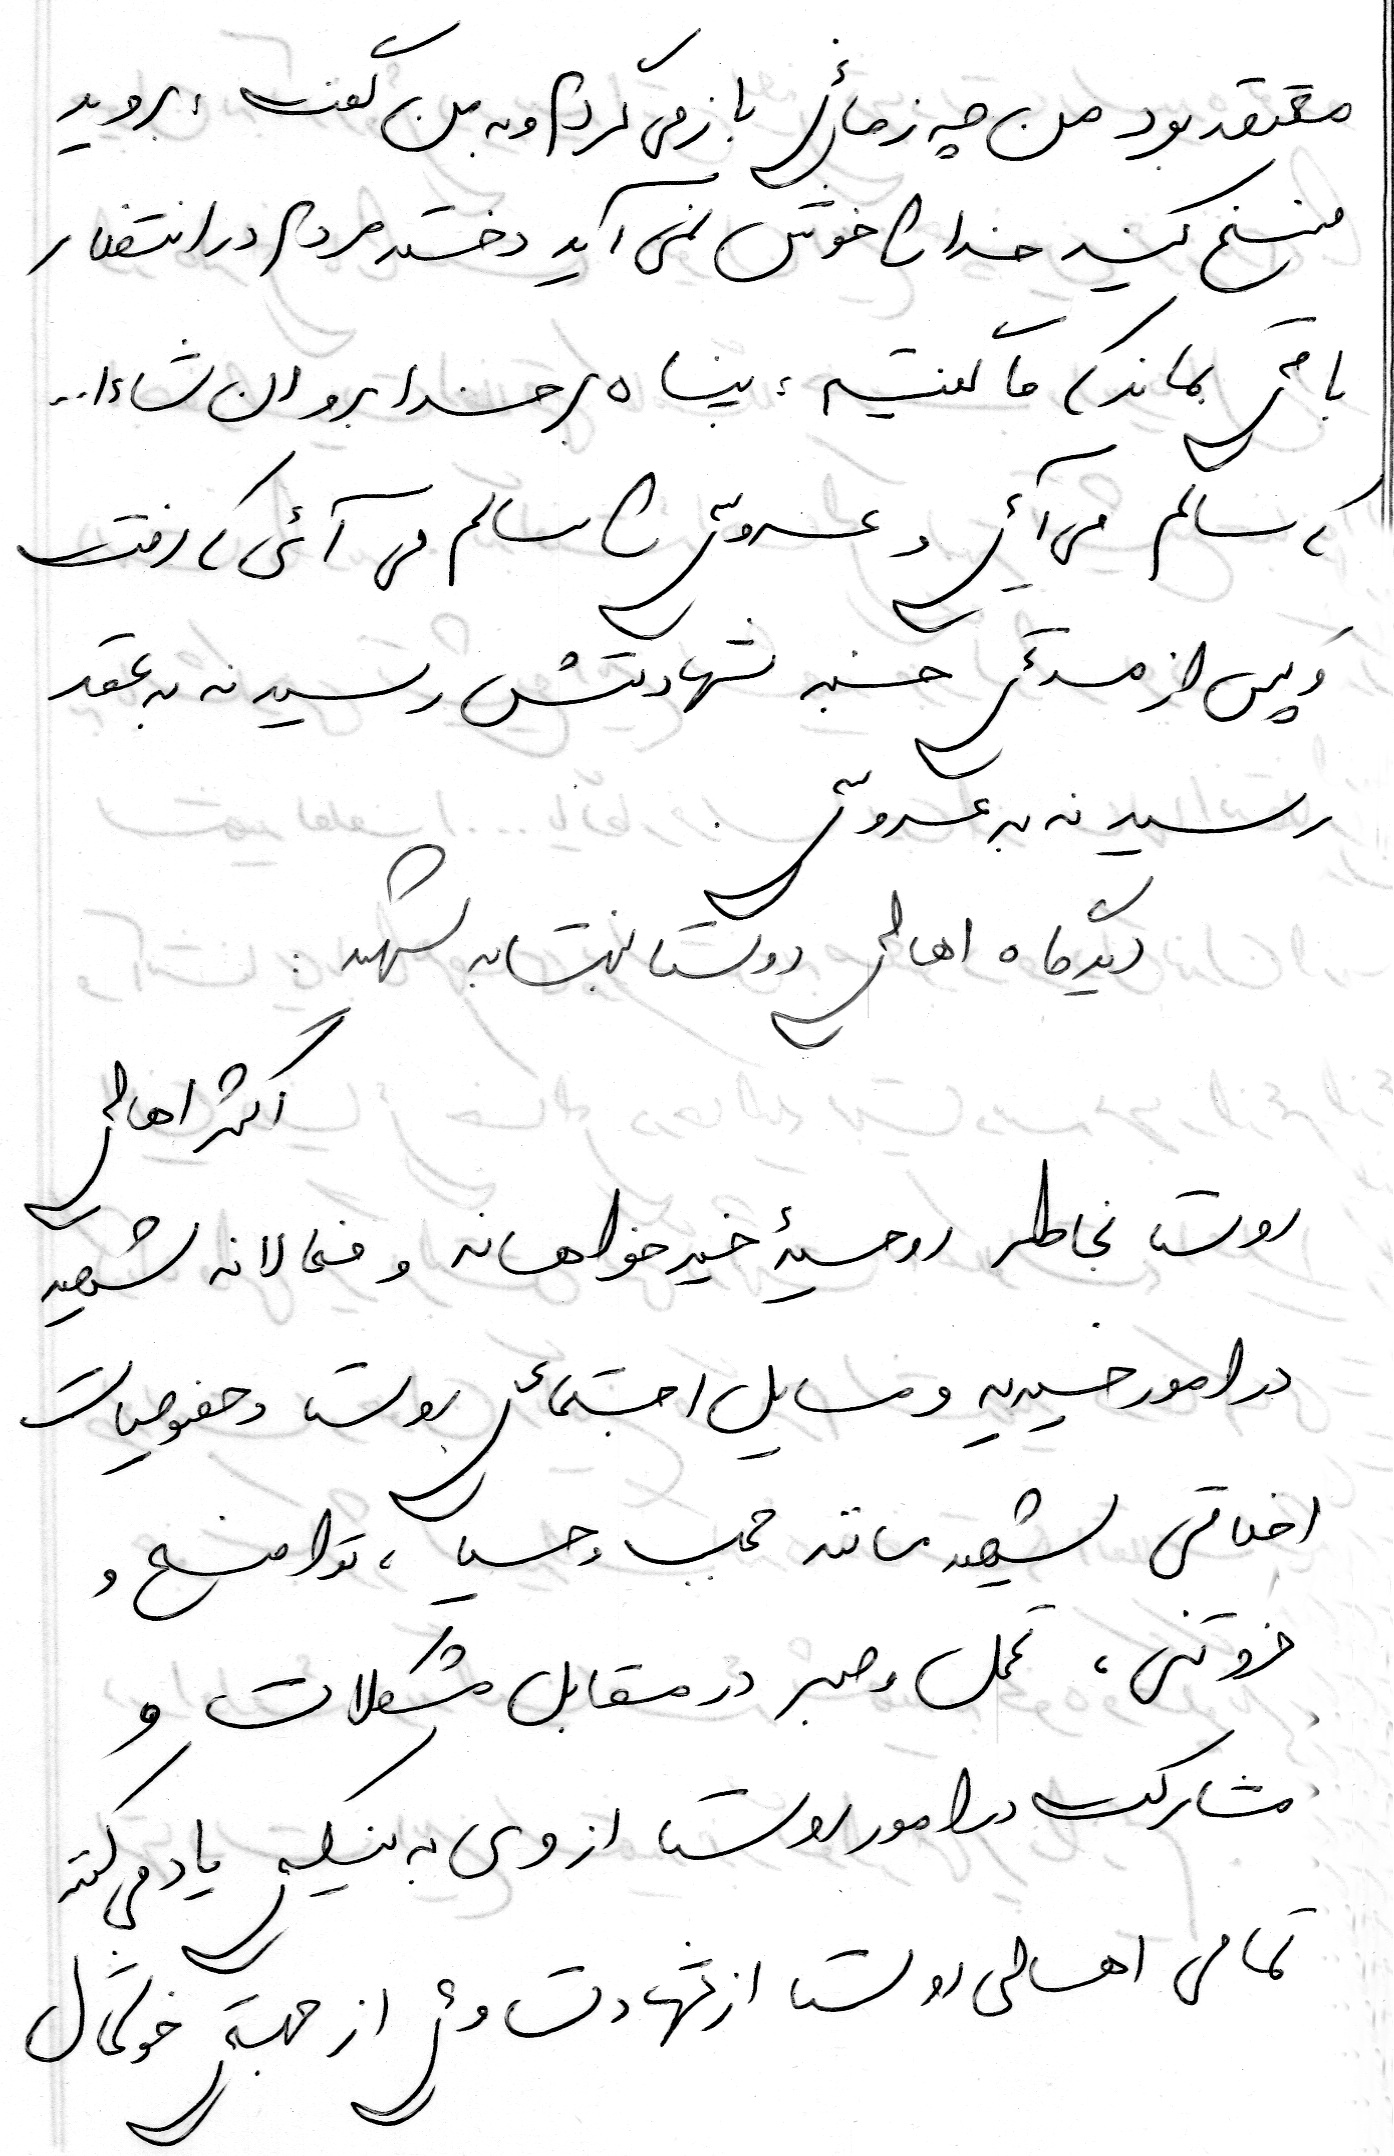 معتقد بود من چه زمانی باز می گردم و به من گفت ، بروید
فسخ کنید خدا را خوش نمی آید دختر مردم در انتظار
باقی بماند ما گفتیم ، پناه بر خدا برو ان شاءا...
که سالم می آئی و عروسی را سالم می آئی که رفت
و پس از مدتی خبر شهادتش رسید نه به عقد
رسید نه به عروسی .
دیدگاه اهالی روستا نسبت به شهید :
اکثر اهالی
روستا بخاطر روحیهٔ خیرخواهانه و فعالانه شهید
در امور خیریه و مسایل اجتماعی روستا و خصوصیات
اخلاقی شهید مانند حجب و حیا ، تواضع و
فروتنی ، تحمل و صبر در مقابل مشکلات و
مشارکت در امور روستا از وی به نیکی یاد می کنند
تمامی اهالی روستا از شهادت وی از جهتی خوشحال